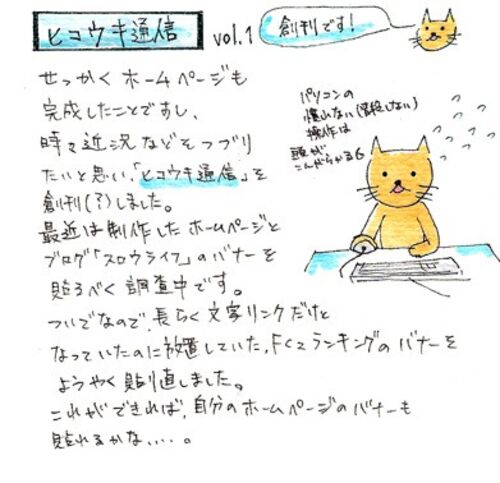 ヒコウキ通信 vol.1
創刊です!
せっかくホームページも
完成したことですし、
時々近況などをつづり
たいと思い、「ヒコウキ通信」を
創刊(?)しました。
最近は制作したホームページと
ブログ「スロウライフ」のバナーを
貼るべく調査中です。
ついでなので、長らく文字リンクだけと
なっていたのに放置していた、FC2ランキングのバナーを
ようやく貼り直しました。
これができれば、自分のホームページのバナーも
貼れるかな、、、、。
パソコンの
慣れない(普段しない)
操作は
頭が
こんがらがる6